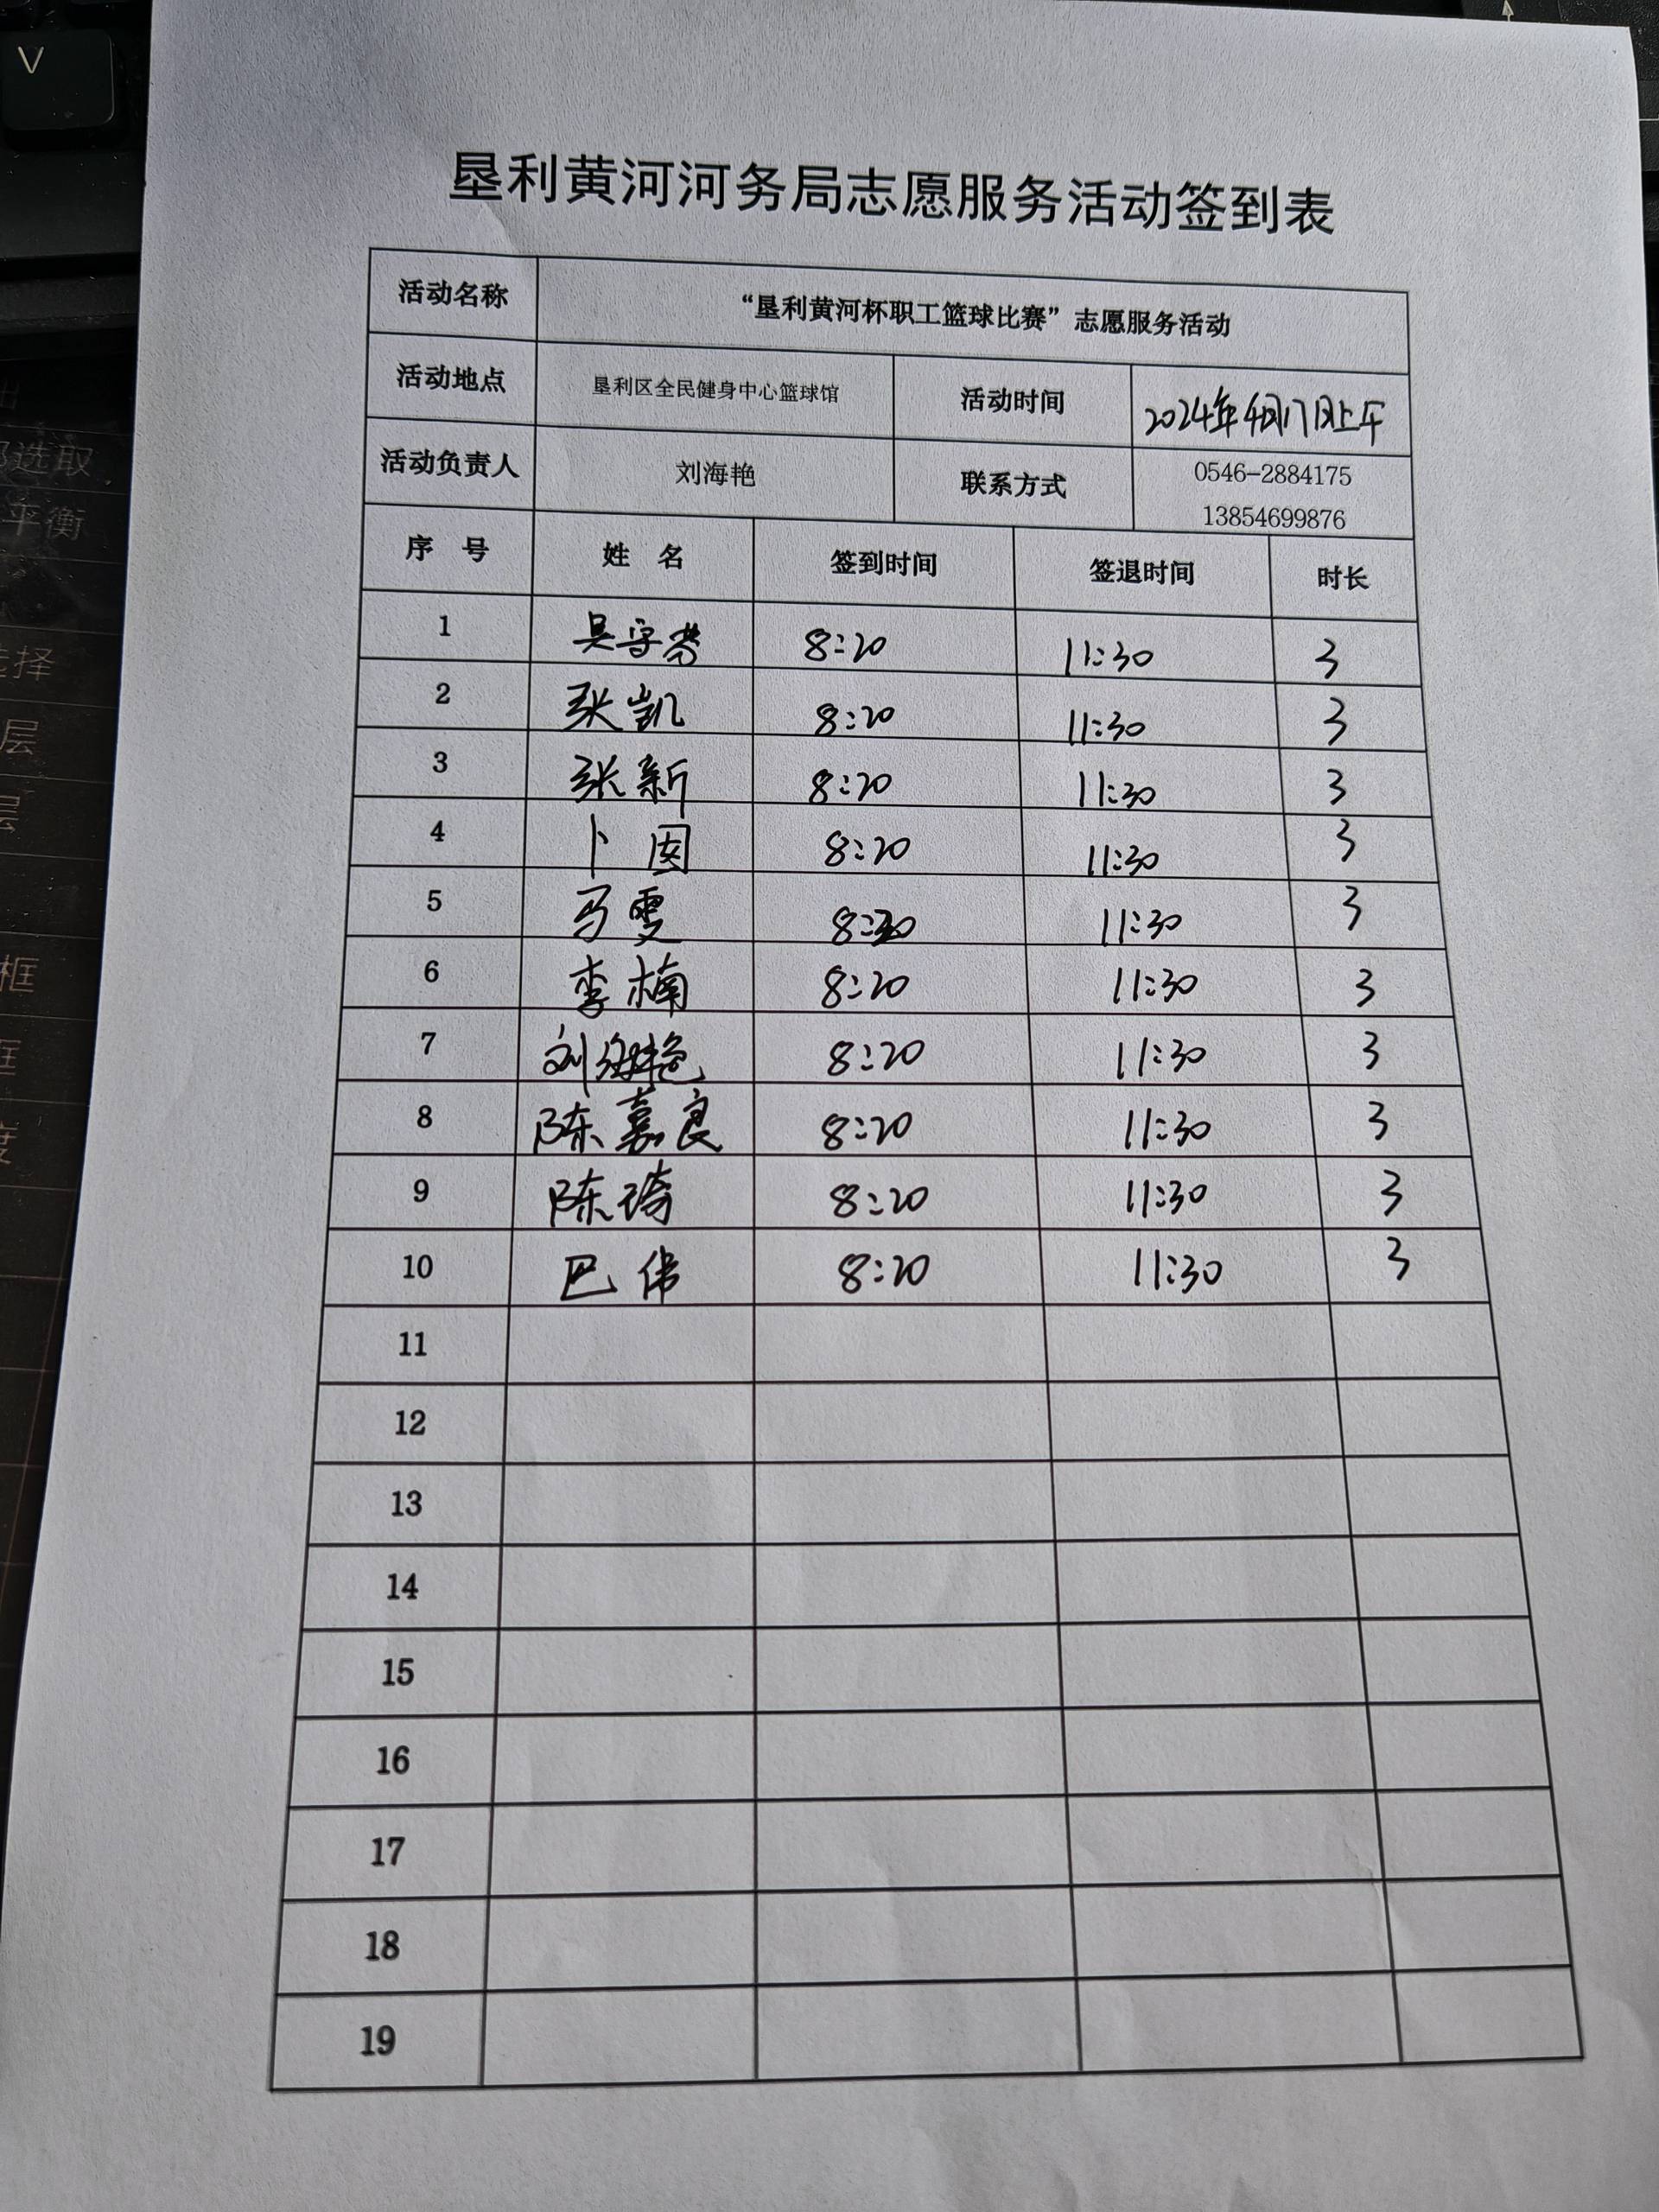 V
垦利黄河河务局志愿服务活动签到表
活动名称 “垦利黄河杯职工篮球比赛”志愿服务活动
活动地点 垦利区全民健身中心篮球馆 活动时间 2024年4月17日上午
活动负责人 刘海艳 联系方式 0546-2884175
13854699876
序 号 姓 名 签到时间 签退时间 时长
1 8:20 11:30 3
2 张凯 8:20 11:30 3
3 张新 8:20 11:30 3
4 卜 8:20 11:30 3
5 马雯 11:30 3
6 李楠 8:20 11:30 3
7 刘海艳 8:20 11:30 3
8 陈嘉良 8:20 11:30 3
9 陈琦 8:20 11:30 3
10 巴伟 8:20 11:30 3
11
12
13
14
15
16
17
18
19
选取
平衡
选择
层
层
框
框
度